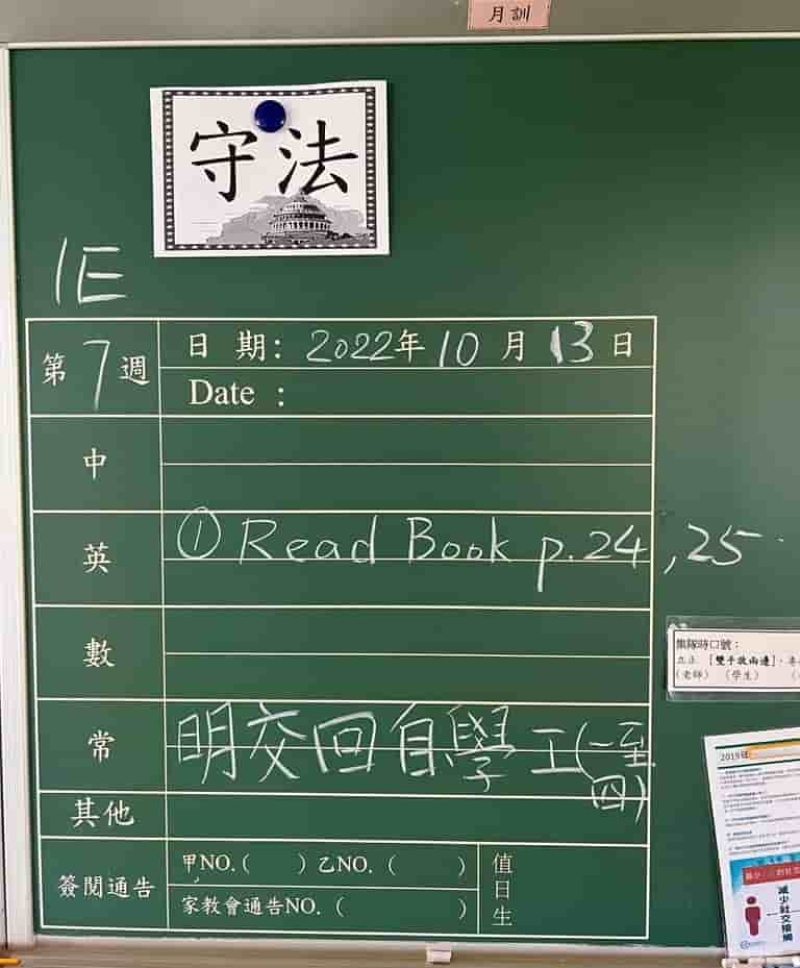 月訓
守法
1E
第7週
日 期：2022年10月13日
Date :
中
英
① Read Book p.24, 25.
數
常
明交回自學工(一至四)
其他
簽閱通告
甲NO.( ) 乙NO. ( )
家教會通告NO. ( )
值日生
集隊時口號：
立正 [雙手放兩邊]
(老師) (學生)
2019
減少社交接觸